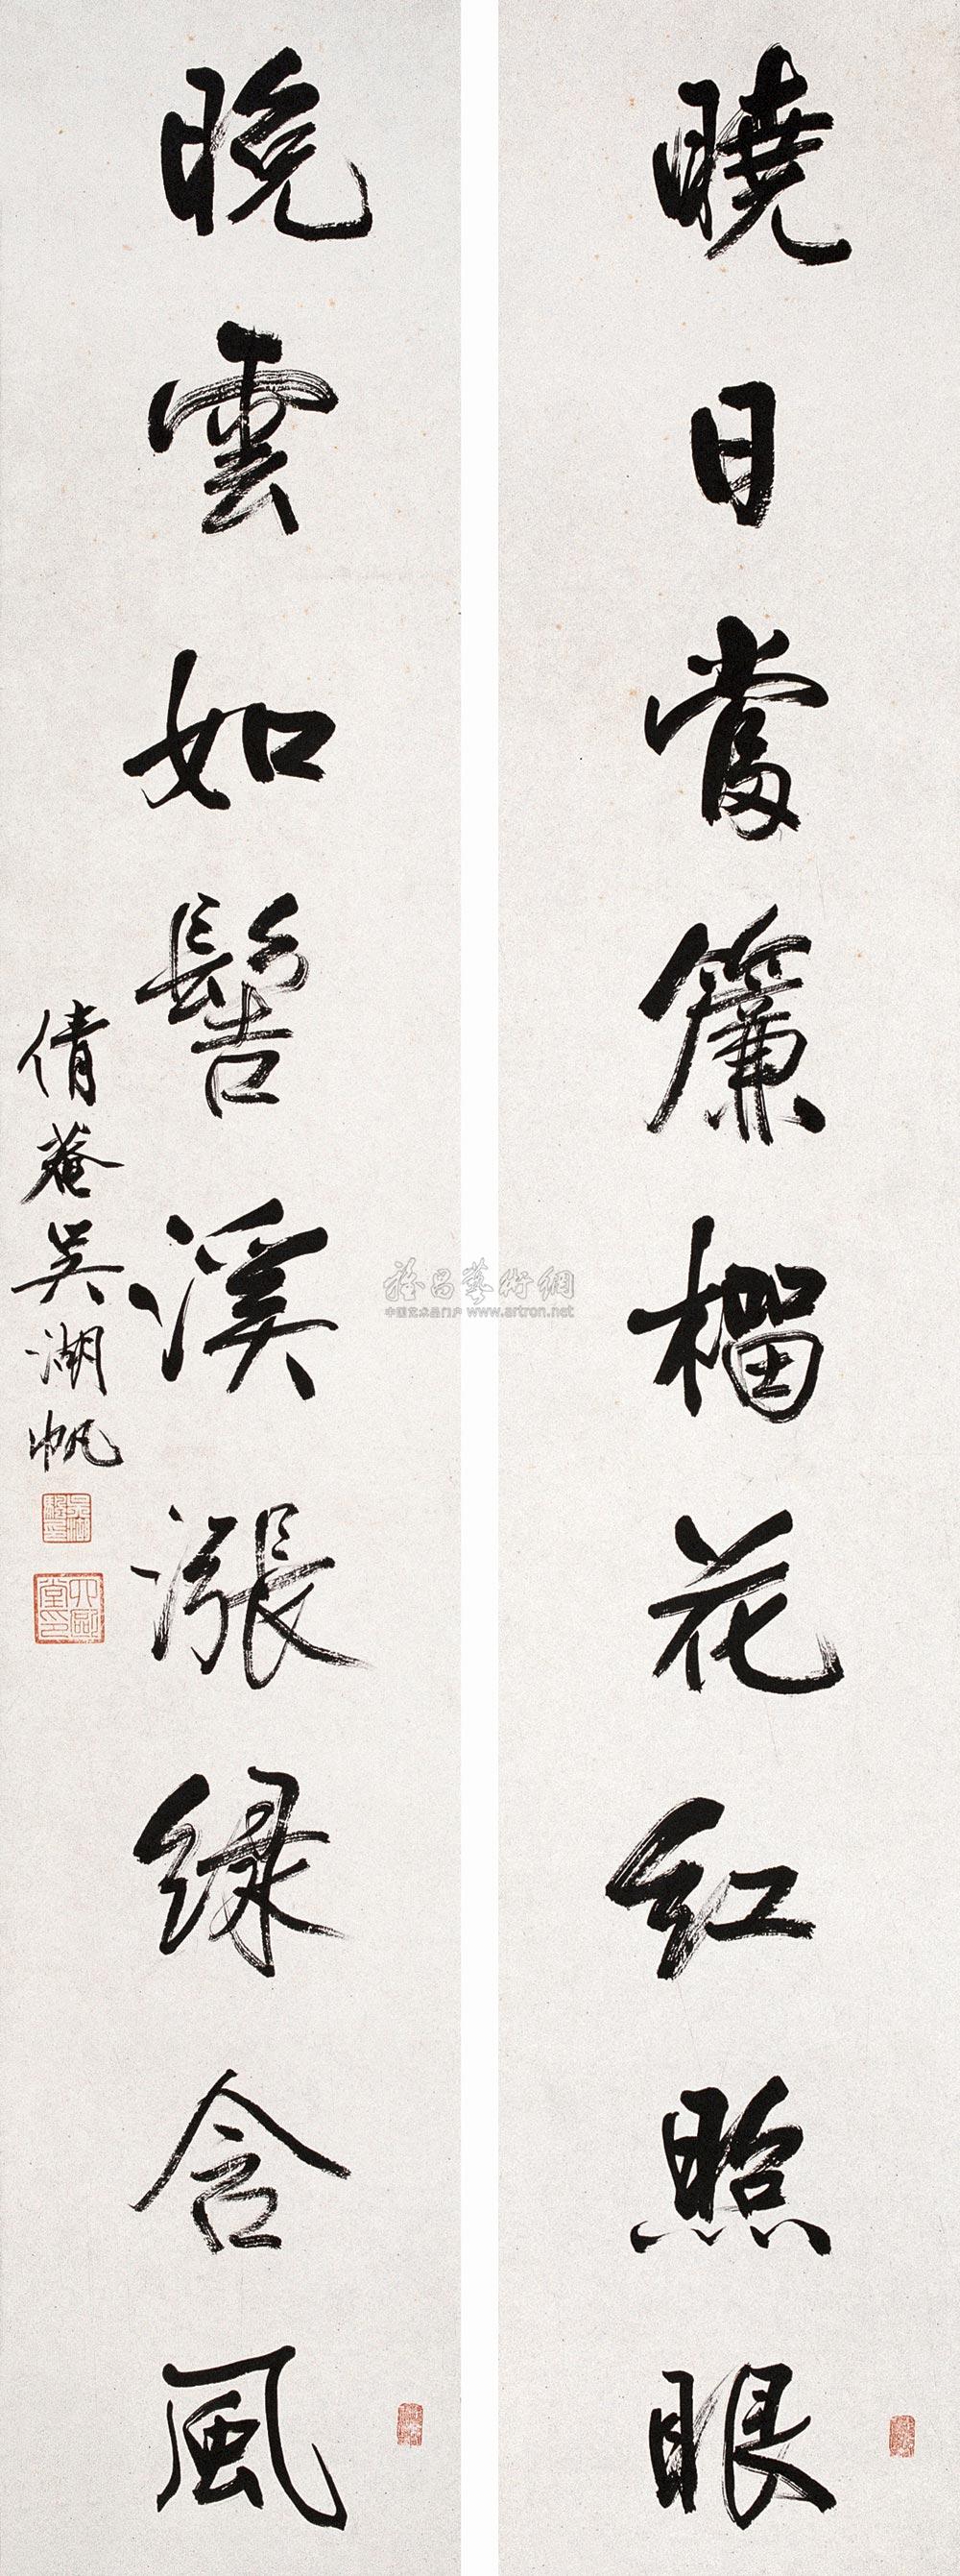 曉日當簾榴花紅照眼
晚雲如髻溪漲綠含風
倩菴吳湖帆
雅昌藝術網
中国艺术品门户 www.artron.net